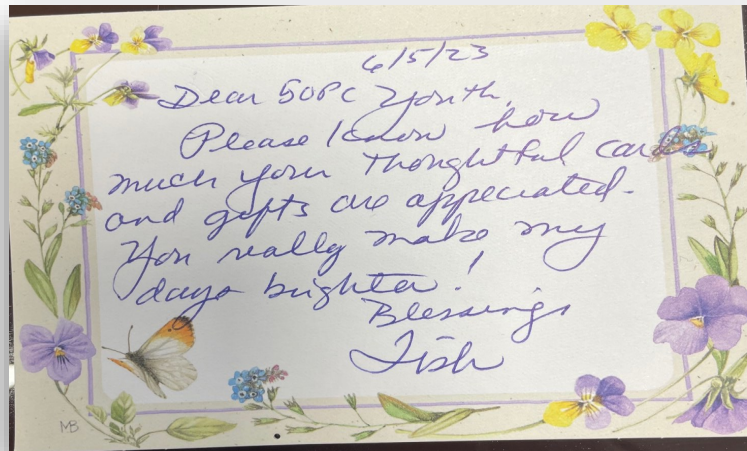 6/5/23
Dear SOPC Youth,
Please know how
much your thoughtful cards
and gifts are appeciated.
You really make my
days brighter!
Blessings
Tish
MB